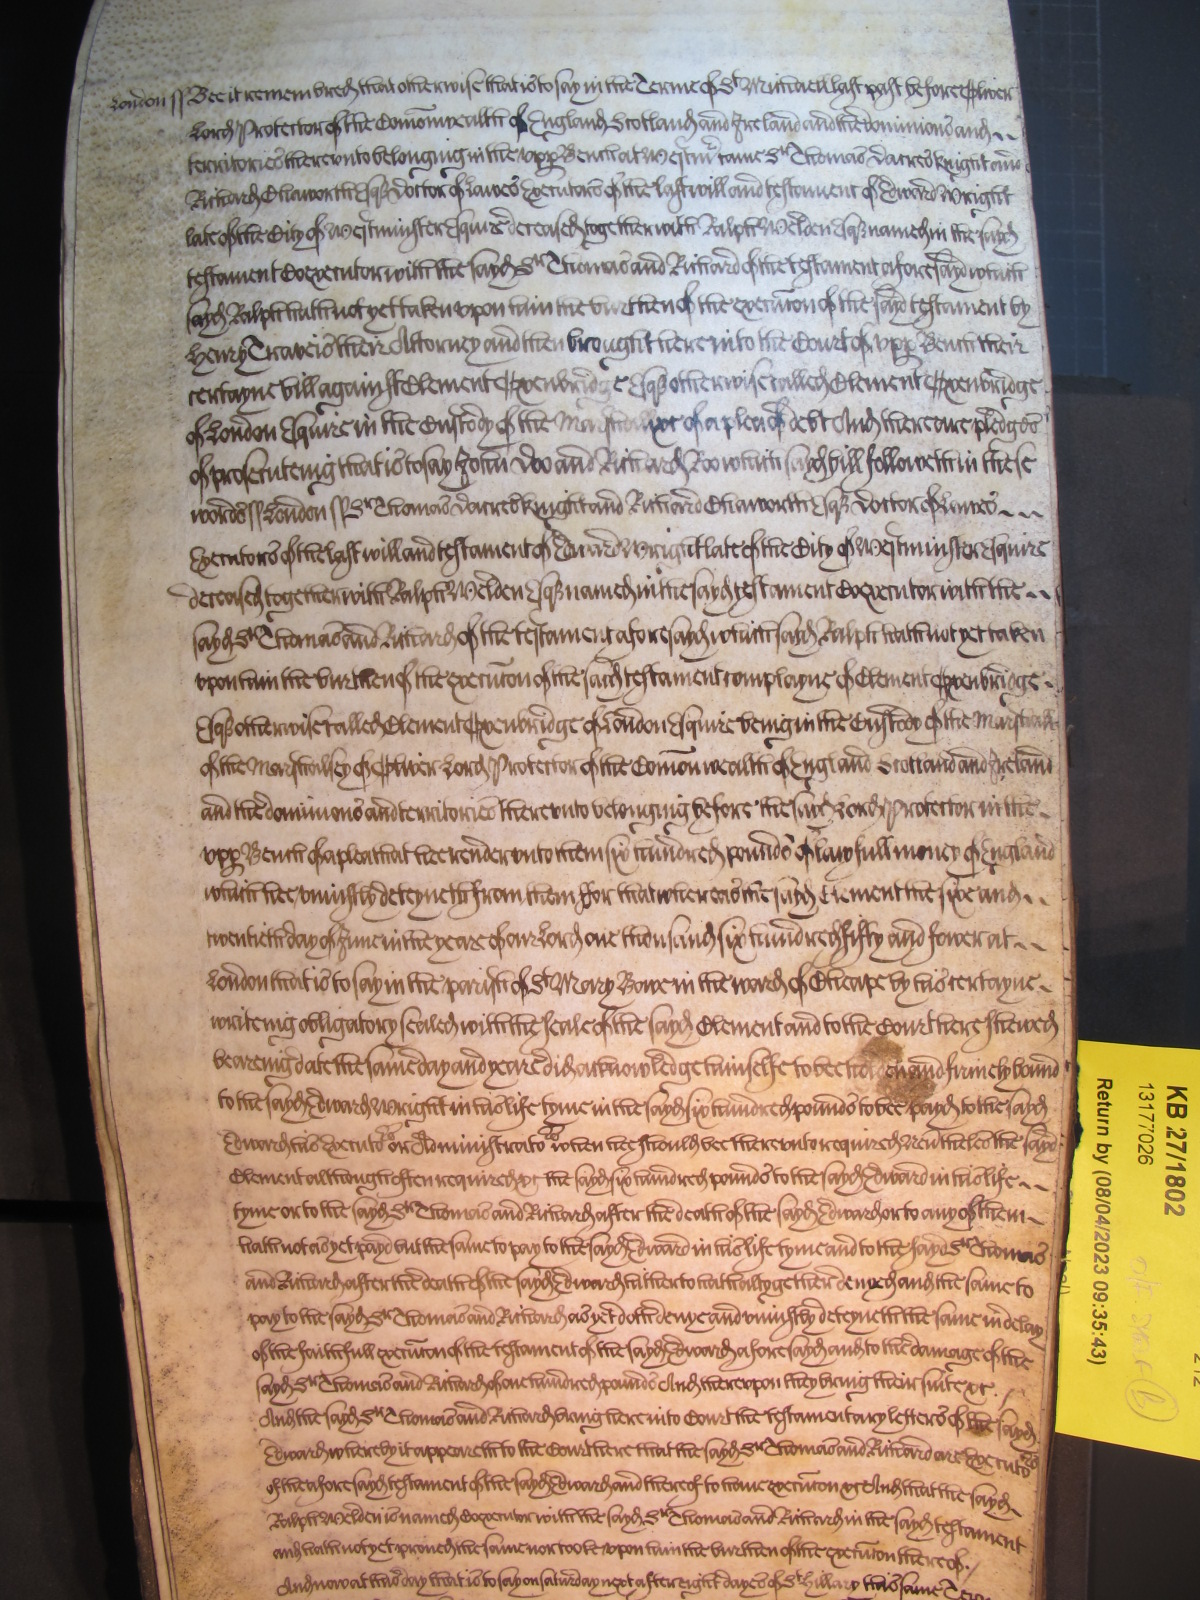 London ss Bee it remembred that otherwise that is to say in the Terme of St Michaell last past before Oliver
Lord Protector of the Comonwealth of England Scotland and Ireland and the dominions and
territories thereunto belonging in the upp Bench at Westmr came Sr Thomas Dacres knight and
Richard Chaworth Esqr Doctor of Lawes Executors of the last will and testament of Edward Wright
late of the City of Westminster Esquire deceased together with Ralph Welden Esqr named in the sayd
testament Coexecutor with the sayd Sr Thomas and Richard of the testament aforesayd which
sayd Ralph hath not yet taken upon him the burthen of the execucon of the sayd testament by
Henry Travers their Attorney and then brought here into the Court of upp Bench their
certayne bill against Clement Oxenbridge Esqr otherwise called Clement Oxenbridge
of London Esquire in the Custody of the Marshall &c of a plea of debt And there are pledges
of prosecuteing that is to say John Doo and Richard Roo which sayd bill followeth in these
words ss London ss Sr Thomas Dacres knight and Richard Chaworth Esqr Doctor of Lawes
Executors of the last will and testament of Edward Wright late of the City of Westminster Esquire
deceased together with Ralph Welden Esqr named in the sayd testament Coexecutor with the
sayd Sr Thomas and Richard of the testament aforesayd which sayd Ralph hath not yet taken
upon him the burthen of the execucon of the sayd testament complayne of Clement Oxenbridge
Esqr otherwise called Clement Oxenbridge of London Esquire being in the Custody of the Marshall
of the Marshalsey of Oliver Lord Protector of the Comonwealth of England Scotland and Ireland
and the dominions and territories thereunto belonging before the sayd Lord Protector in the
upp Bench of a plea that hee render unto them six hundred pounds of lawfull money of England
which hee uniustly deteyneth from them For that whereas the sayd Clement the sixe and
twentieth day of June in the yeare of our Lord one thousand six hundred fifty and fower at
London that is to say in the parish of St Mary Bowe in the ward of Cheape by his certayne
writeing obligatory sealed with the seale of the sayd Clement and to the Court here shewed
beareing date the same day and yeare did acknowledge himselfe to bee holden and firmely bound
to the sayd Edward Wright in his life tyme in the sayd six hundred pounds to bee payd to the sayd
Edward his Executors or Administrators when hee should bee thereunto required Neverthelesse the sayd
Clement although often required &c the sayd six hundred pounds to the sayd Edward in his life
tyme or to the sayd Sr Thomas and Richard after the death of the sayd Edward or to any of them
hath not as yet payd but the same to pay to the sayd Edward in his life tyme and to the sayd Sr Thomas
and Richard after the death of the sayd Edward hitherto hath altogether denyed and the same to
pay to the sayd Sr Thomas and Richard as yet doth denye and uniustly deteyneth the same in delay
of the faithfull execucon of the testament of the sayd Edward aforesayd and to the damage of the
sayd Sr Thomas and Richard of one hundred pounds And thereupon they bring their suite &c
And the sayd Sr Thomas and Richard bring here into Court the testamentary letters of the sayd
Edward whereby it appeareth to the Court here that the sayd Sr Thomas and Richard are Executors
of the aforesayd testament of the sayd Edward and thereof to have execucon &c And that the sayd
Ralph Welden is named Coexecutor with the sayd Sr Thomas and Richard in the sayd testament
and hath not yet proved the same nor tooke upon him the burthen of the execucon thereof
And now at this day that is to say on saturday next after eight dayes of St Hillary this same Terme
KB 27/1802
13177026
Return by (08/04/2023 09:35:43)